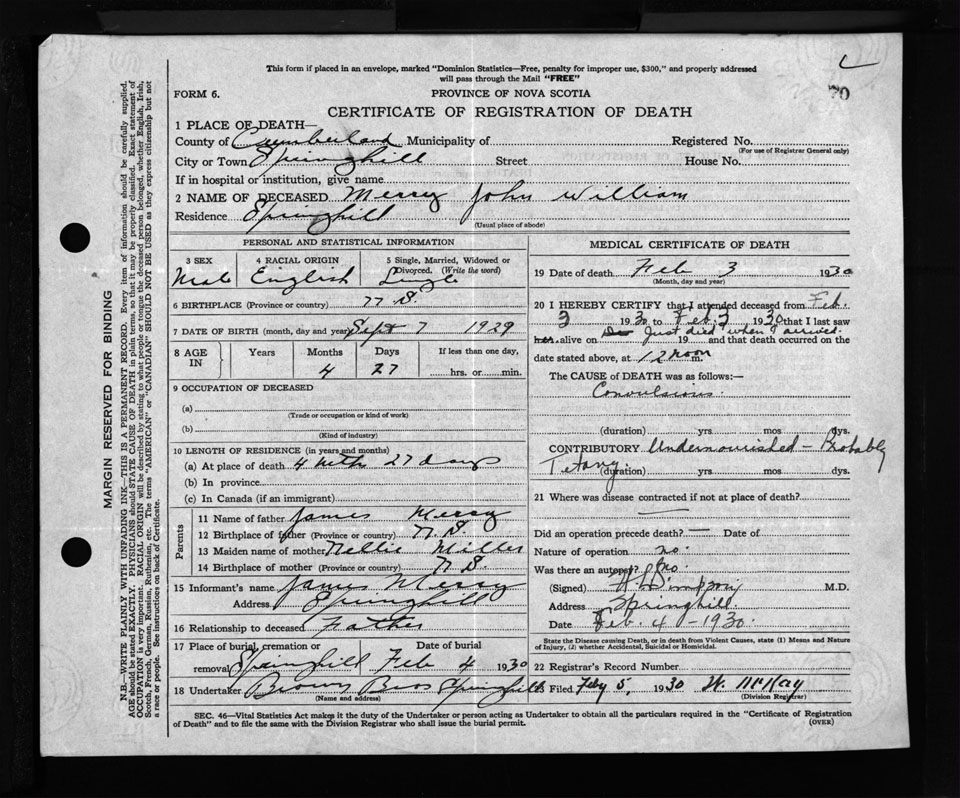 This form if placed in an envelope, marked "Dominion Statistics—Free, penalty for improper use, $300," and properly addressed
will pass through the Mail "FREE"
FORM 6.
PROVINCE OF NOVA SCOTIA
70
CERTIFICATE OF REGISTRATION OF DEATH
MARGIN RESERVED FOR BINDING
N.B.—WRITE PLAINLY WITH UNFADING INK—THIS IS A PERMANENT RECORD. Every item of information should be carefully supplied.
AGE should be stated EXACTLY. PHYSICIANS should STATE CAUSE OF DEATH in plain terms, so that it may be properly classified. Exact statement of
OCCUPATION is very important. RACIAL ORIGIN will be described by stating to what people or tongue the deceased person belonged, whether English, Irish,
Scotch, French, German, Russian, Ruthenian, etc. The terms "AMERICAN" or "CANADIAN" SHOULD NOT BE USED as they express citizenship but not
a race or people. See instructions on back of Certificate.
1 PLACE OF DEATH—
County of Cumberland Municipality of Registered No.
(For use of Registrar General only)
City or Town Springhill Street House No.
If in hospital or institution, give name
2 NAME OF DECEASED Merry John William
Residence Springhill
(Usual place of abode)
PERSONAL AND STATISTICAL INFORMATION
3 SEX Male
4 RACIAL ORIGIN English
5 Single, Married, Widowed or
Divorced. (Write the word) Single
6 BIRTHPLACE (Province or country) N.S.
7 DATE OF BIRTH (month, day and year) Sept 7 1929
8 AGE IN Years Months 4 Days 27 If less than one day, hrs. or min.
9 OCCUPATION OF DECEASED
(a)
(Trade or occupation or kind of work)
(b)
(Kind of industry)
10 LENGTH OF RESIDENCE (in years and months)
(a) At place of death 4 mths 27 days
(b) In province
(c) In Canada (if an immigrant)
Parents
11 Name of father James Merry
12 Birthplace of father (Province or country) N.S.
13 Maiden name of mother Nellie Miller
14 Birthplace of mother (Province or country) N.S.
15 Informant's name James Merry
Address Springhill
16 Relationship to deceased Father
17 Place of burial, cremation or
removal Springhill
Date of burial
Feb 4 1930
18 Undertaker Brown Bros Springhill
(Name and address)
MEDICAL CERTIFICATE OF DEATH
19 Date of death Feb 3 1930
(Month, day and year)
20 I HEREBY CERTIFY that I attended deceased from Feb.
3 1930 to Feb. 3 1930 that I last saw
Just died when I arrived
h alive on 19 and that death occurred on the
date stated above, at 12 noon m.
The CAUSE of DEATH was as follows:—
Convulsions.
(duration) yrs mos dys.
CONTRIBUTORY Undernourished – Probably
Tetany. (duration) yrs. mos dys.
21 Where was disease contracted if not at place of death?
Did an operation precede death? — Date of
Nature of operation no.
Was there an autopsy? No.
(Signed) Simpson M.D.
Address Springhill.
Date Feb. 4 – 1930.
State the Disease causing Death, or in death from Violent Causes, state (1) Means and Nature
of Injury, (2) whether Accidental, Suicidal or Homicidal.
22 Registrar's Record Number
23 Filed Feby 5, 1930 W. McKay
(Division Registrar)
SEC. 46—Vital Statistics Act makes it the duty of the Undertaker or person acting as Undertaker to obtain all the particulars required in the "Certificate of Registration
of Death" and to file the same with the Division Registrar who shall issue the burial permit.
(OVER)